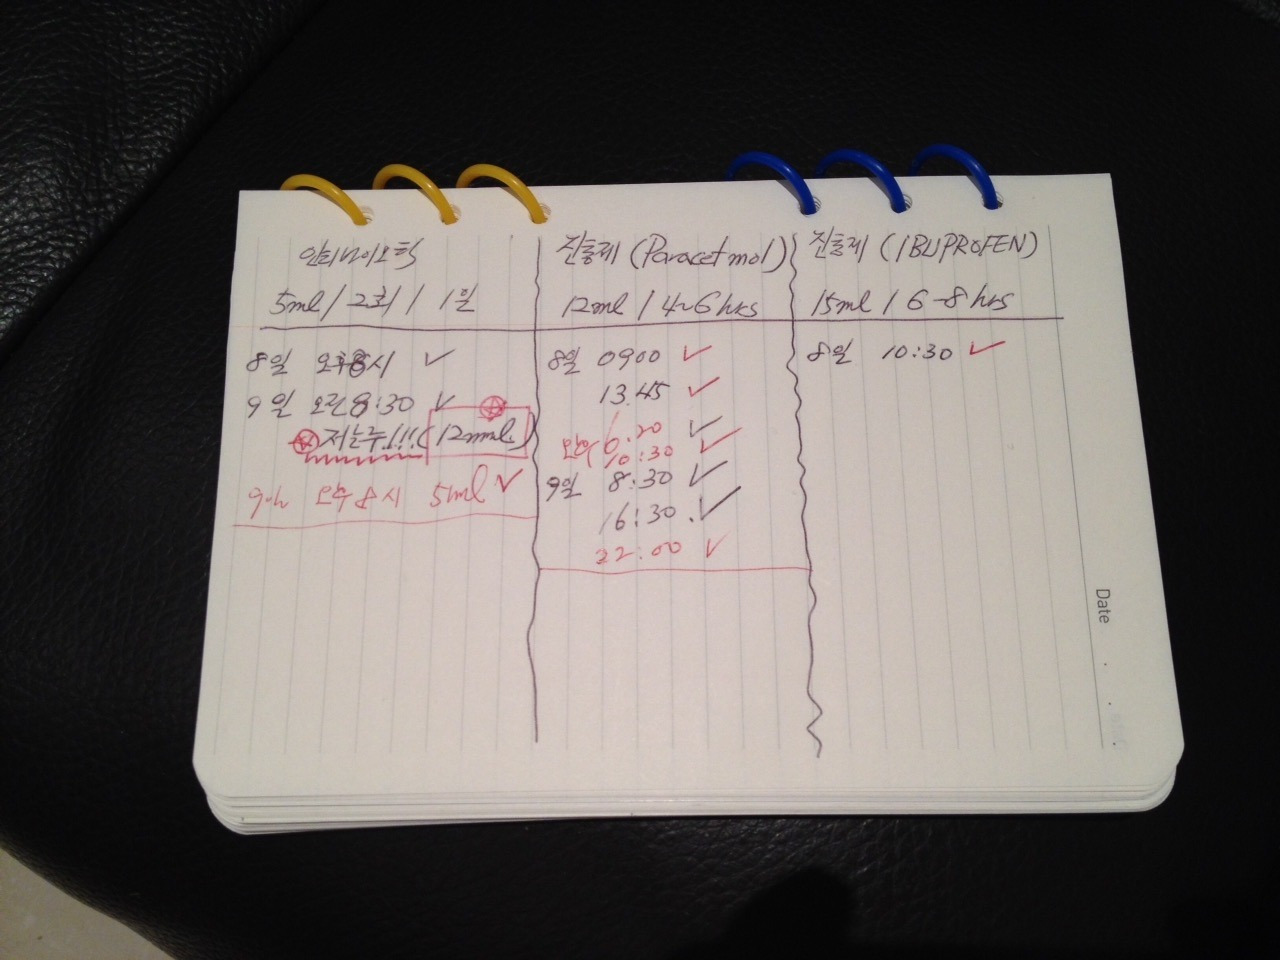 안티바이오틱
5ml / 2회 / 1일
8일 오후8시 ✓
9일 오전 8:30 ✓
저는두!!! (12mml)
9일 오후 8시 5ml ✓
진통제 (Paracetmol)
12ml / 4~6hrs
8일 0900 ✓
13.45 ✓
6.20 ✓
10:30 ✓
9일 8:30 ✓
16:30 ✓
22:00 ✓
진통제 (IBUPROFEN)
15ml / 6-8hrs
8일 10:30 ✓
Date